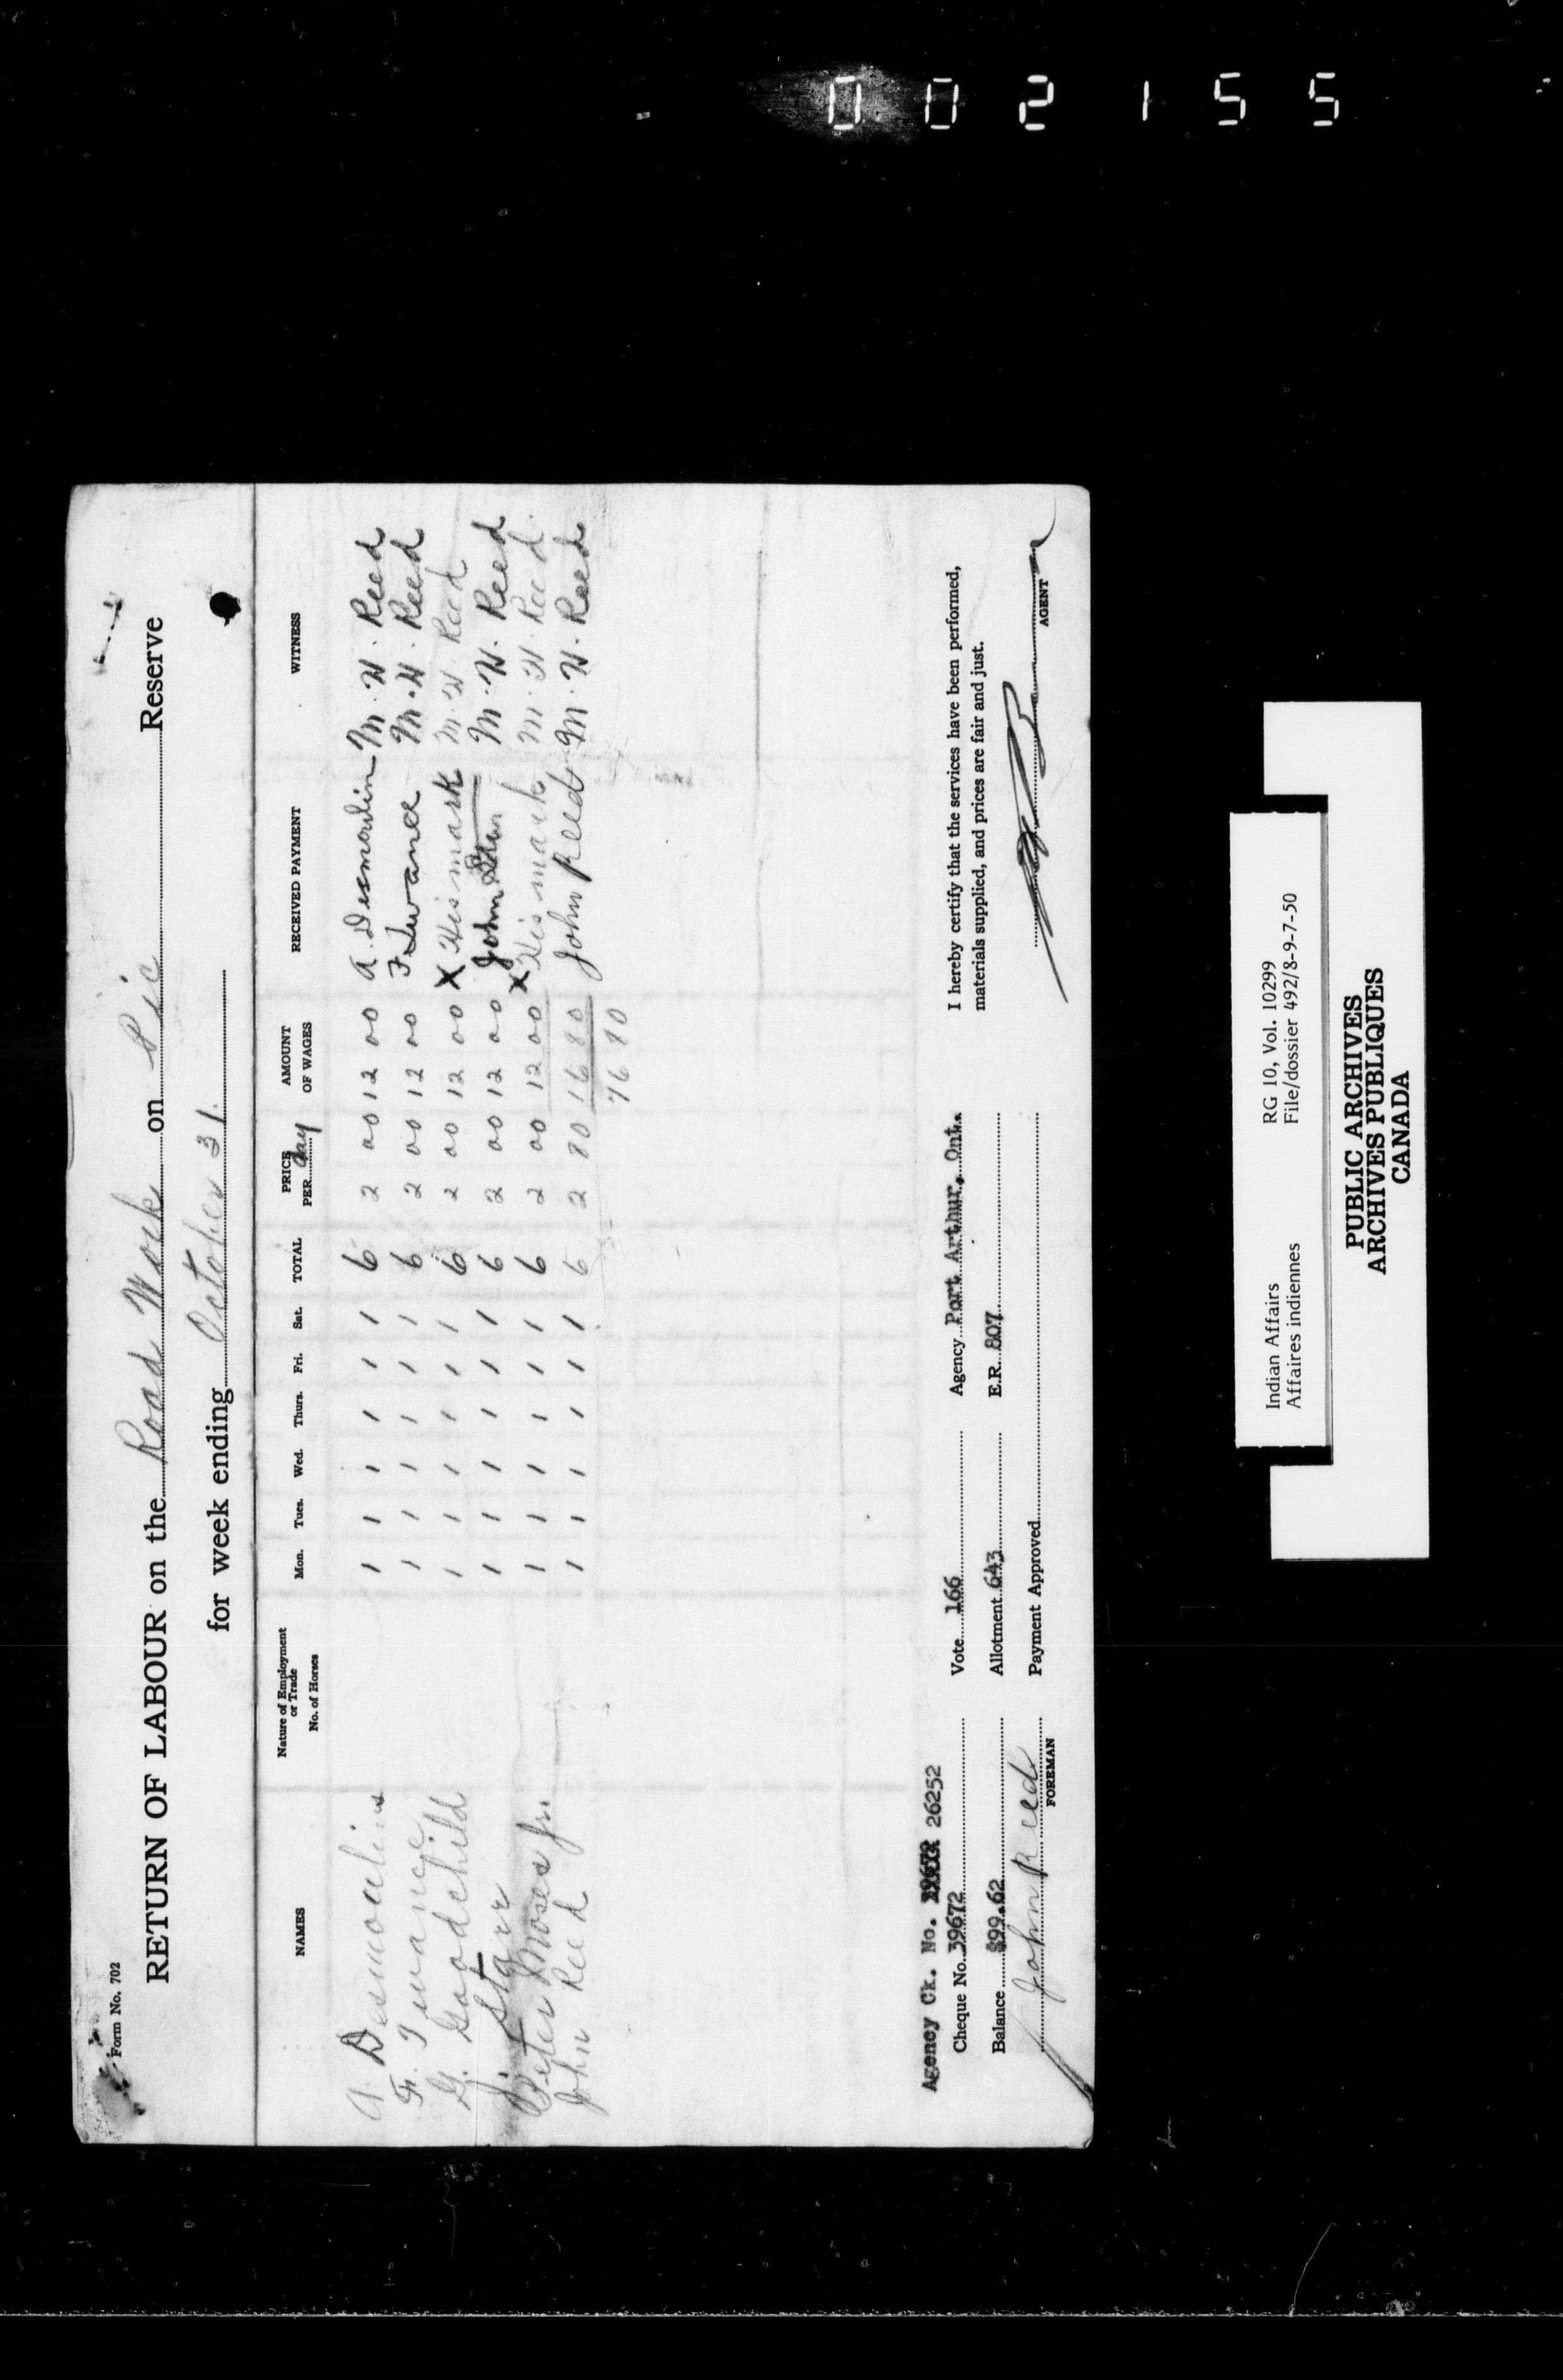 002155
Form No. 702
RETURN OF LABOUR on the Road Work on Pic Reserve
for week ending October 31
NAMES Nature of Employment or Trade No. of Horses Mon. Tues. Wed. Thurs. Fri. Sat. TOTAL PRICE PER day AMOUNT OF WAGES RECEIVED PAYMENT WITNESS
A. Desmoulins 1 1 1 1 1 1 6 2 00 12 00 A. Desmoulin M. W. Reed
F. Twance 1 1 1 1 1 1 6 2 00 12 00 F Twance M. W. Reed
G. Goodchild 1 1 1 1 1 1 6 2 00 12 00 X His mark M. W. Reed
J. Starr 1 1 1 1 1 1 6 2 00 12 00 John Starr M. W. Reed
Peter Moses Jr. 1 1 1 1 1 1 6 2 00 12 00 X His mark M. W. Reed
John Reed 1 1 1 1 1 1 6 2 80 16 80 John Reed M. W. Reed
76 80
Agency Ck. No. 26252
Cheque No. 39672 Vote 166 Agency Port Arthur, Ont. I hereby certify that the services have been performed,
Balance 899.62 Allotment 643 E.R. 807 materials supplied, and prices are fair and just.
John Reed Payment Approved
FOREMAN AGENT
Indian Affairs RG 10, Vol. 10299
Affaires indiennes File/dossier 492/8-9-7-50
PUBLIC ARCHIVES
ARCHIVES PUBLIQUES
CANADA